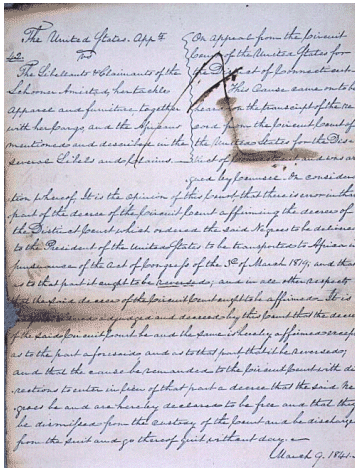 The United States. Appts.
42. vs
The Libellants & Claimants of the
Schooner Amistad, her tackle
apparel and furniture together
with her cargo, and the Africans
mentioned and described in the
several Libels and claims.
On appeal from the Circuit
Court of the United States for
the District of Connecticut.
This Cause came on to be
heard on the transcript of the re-
cord from the Circuit Court of
the United States for the Dis-
trict of and was ar-
gued by counsel. On considera-
tion whereof, It is the opinion of this Court, that there is error in that
part of the decree of the Circuit Court affirming the decree of
the District Court which ordered the said Negroes to be delivered
to the President of the United States to be transported to Africa in
pursuance of the act of Congress of the 3d of March 1819; and that
as to that part it ought to be reversed; and in all other respects
that the said decree of the Circuit Court ought to be affirmed. It is
adjudged and decreed by this Court that the decree
of the said Circuit Court be and the same is hereby affirmed except
as to the part aforesaid and as to that part that it be reversed;
and that the cause be remanded to the Circuit Court with di-
rections to enter in lieu of that part a decree that the said Ne-
groes be and are hereby declared to be free and that they
be dismissed from the custody of the Court and be discharged
from the suit and go thereof quit without day.
March 9. 1841